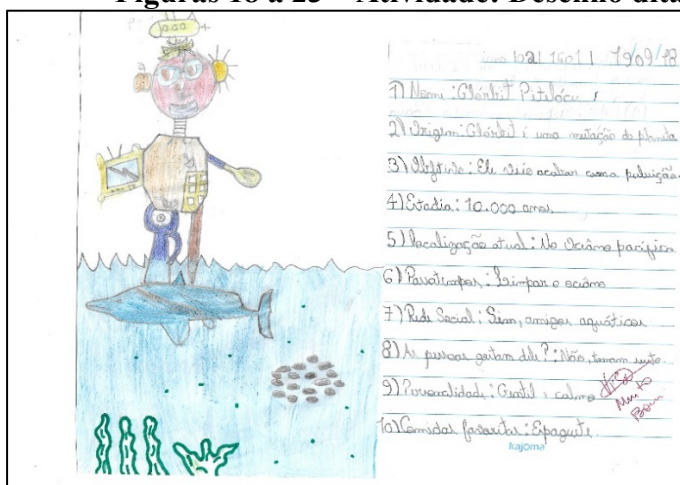 Figuras 18 a 23 – Atividade: Desenho dita
19/09/18
1) Nome: Glórbit Pitilócu
2) Origem: Glórbit é uma mutação do planeta
3) Objetivo: Ele veio acabar com a poluição
4) Estadia: 10.000 anos
5) Localização atual: No Oceâno pacífico
6) Passatempos: Limpar o oceâno
7) Rede Social: Sim, amigos aquáticos
8) As pessoas gostam dele?: Não, tomam susto
9) Personalidade: Gentil e calmo
Muito
Bom
10) Comidas favoritas: Espaguete
kajoma